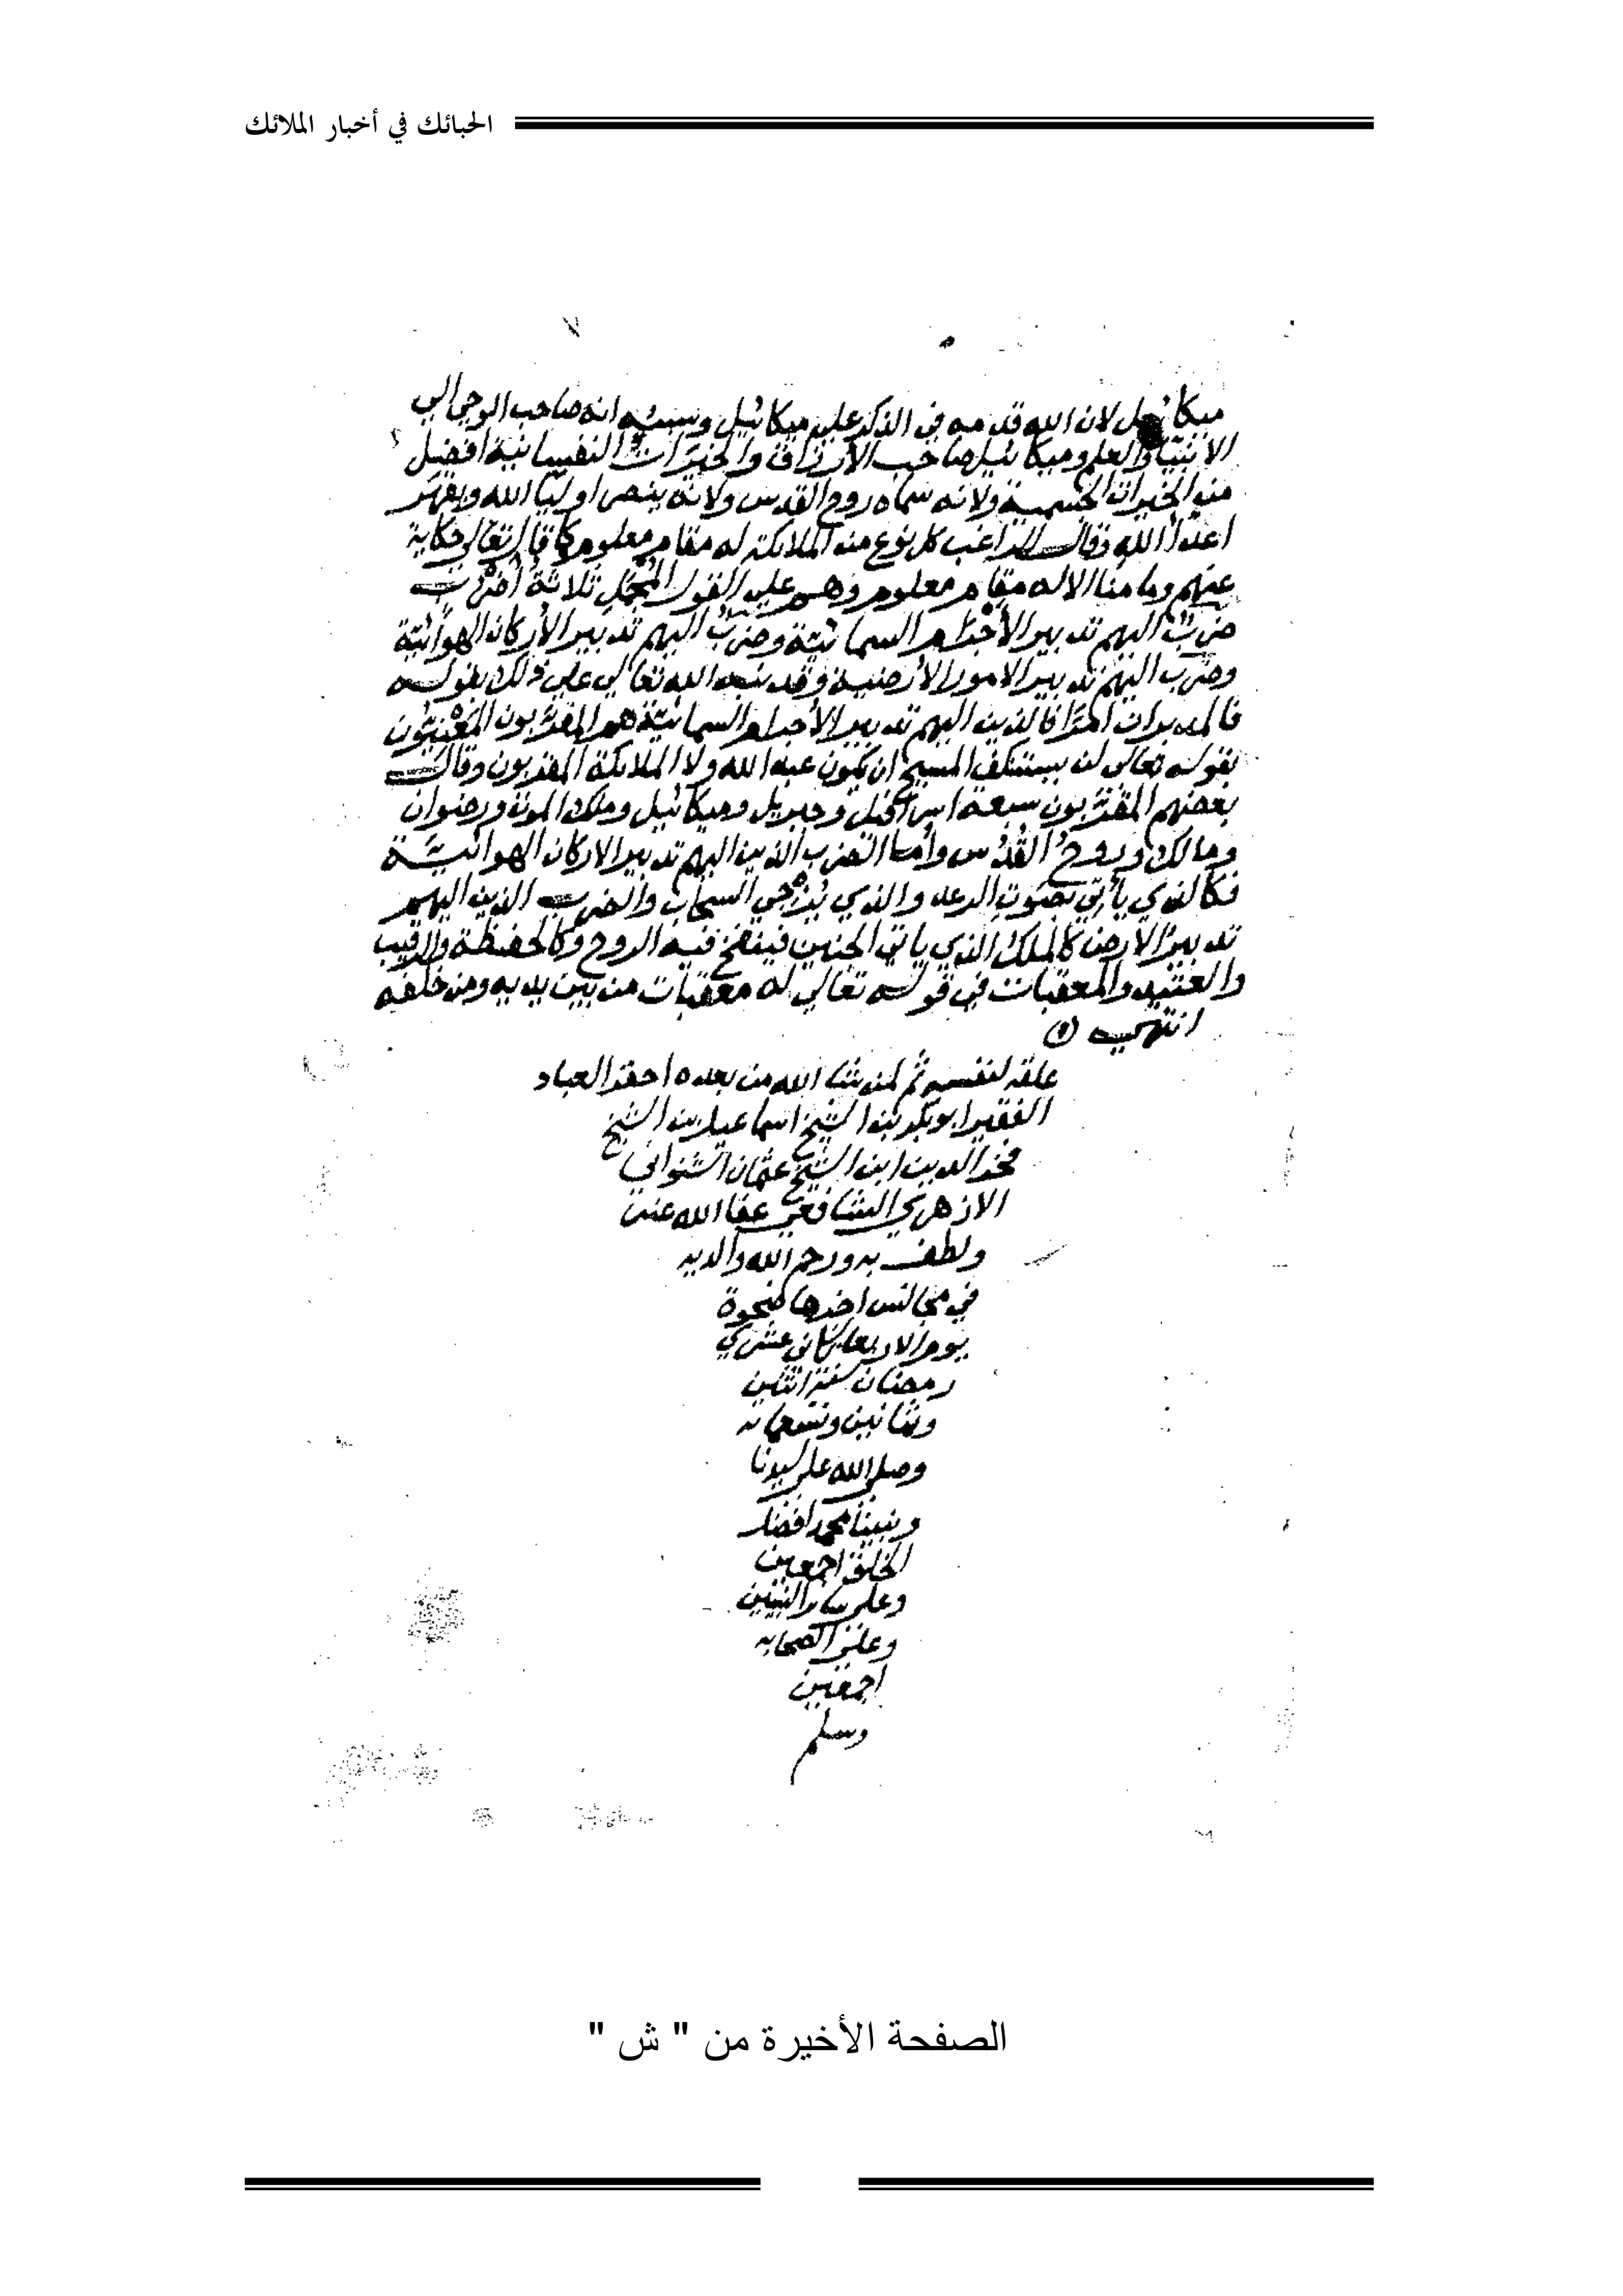 الحبائك في أخبار الملائك
ميكائيل لان الله قدمه في الذكر علي ميكائيل وسببه انه صاحب الوحي الي
الانبيا والعلم وميكائيل صاحب الأرزاق والخيرات النفسانية افضل
من الخيرات الجسمية ولانه سماه روح القدس ولانه ينصر اوليا الله ويقهر
اعدا الله وقال الراغب كل نوع من الملائكة له مقام معلوم كما قال تعالي حكاية
عنهم وما منا الا له مقام معلوم وهم علي القول المجمل ثلاثة أضرب
ضرب اليهم تدبير الأجرام السمائية وضرب اليهم تدبير الأركان الهوائية
وضرب اليهم تدبير الامور الأرضية وقد نبه الله تعالي علي ذلك بقوله
فالمدبرات امرا فالذين اليهم تدبير الأجرام السمائية هم المقربون المعنيون
بقوله تعالي لن يستنكف المسيح ان يكون عبدا لله ولا الملائكة المقربون وقال
بعضهم المقربون سبعة اسرافيل وجبريل وميكائيل وملك الموت ورضوان
ومالك وروح القدس وأما الضرب الذين اليهم تدبير الاركان الهوائية
فكالذي يأتي بصوت الرعد والذي يزجي السحاب والضرب الذين اليهم
تدبير الارض كالملك الذي ياتي الجنين فينفخ فيه الروح وكالحفظة والرقيب
والعتيد والمعقبات في قوله تعالي له معقبات من بين يديه ومن خلفه
انتهي
علقه لنفسه ثم لمن شا الله من بعده احقر العباد
الفقير ابو بكر بن الشيخ اسماعيل بن الشيخ
فخر الدين ابن الشيخ عثمان الشنواني
الازهري الشافعي عفا الله عنه
ولطف به ورحم الله والديه
في مجالس اخرها ضحوة
يوم الاربعا ثاني عشري
رمضان سنة اثنين
وثمانين وتسعمائه
وصلي الله علي سيدنا
ونبينا محمد افضل
الخلق اجمعين
وعلي سائر النبيين
وعلي الصحابه
اجمعين
وسلم
الصفحة الأخيرة من " ش "